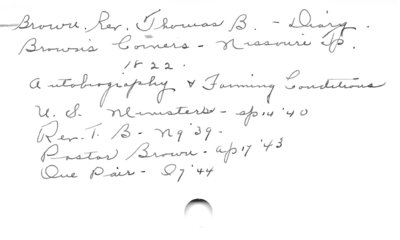 Brown, Rev. Thomas B. - Diary.
Brown's Corners - Nissouri Tp.
1822.
Autobiography & Farming Conditions
U. S. Ministers - sp 14 '40
Rev. T. B - N9 '39.
Pastor Brown - ap 17 '43
One Pair - D7 '44